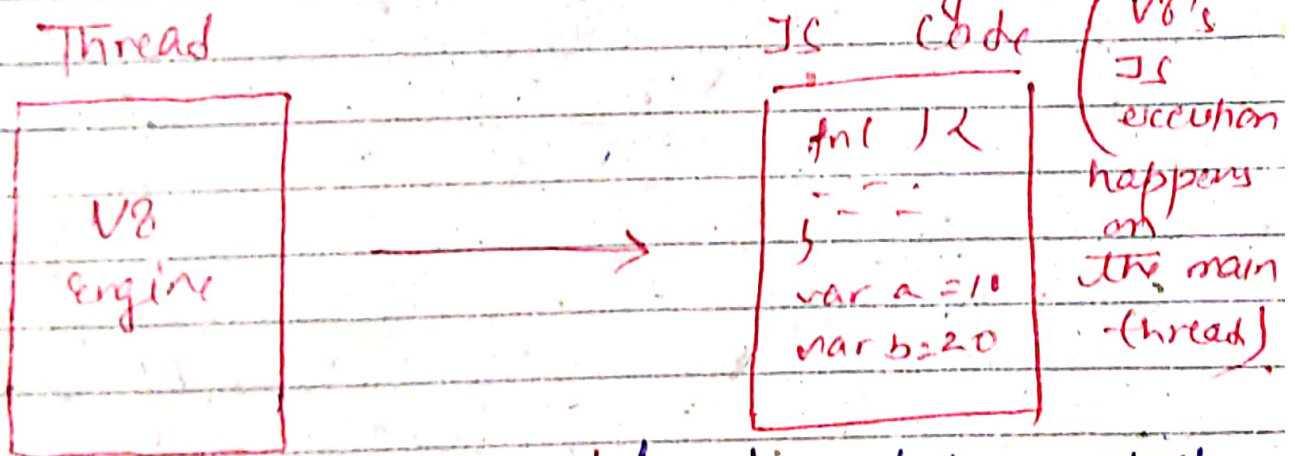 Thread
JS Code
V8
Engine
fn( ) {
- - -
}
var a = 10
var b = 20
(V8's
JS
execution
happens
on
the main
thread)